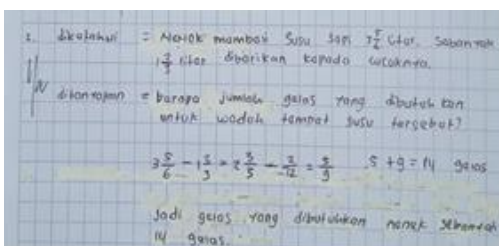 diketahui = Nenek membeli susu sapi liter. Sebanyak
liter diberikan kepada cucunya.
ditanyakan = berapa jumlah gelas yang dibutuhkan
untuk wadah tempat susu tersebut?
3 5/6 - 1 5/3 = 2 3/5 - 2/12 = 5/9 5 + 9 = 14 gelas
Jadi gelas yang dibutuhkan nenek sebanyak
14 gelas.